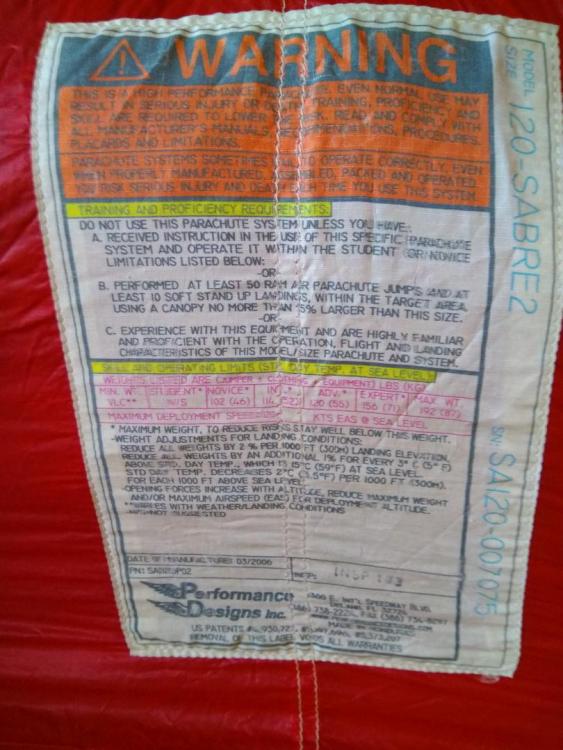 WARNING
THIS IS A HIGH PERFORMANCE PARACHUTE. EVEN NORMAL USE MAY
RESULT IN SERIOUS INJURY OR DEATH. TRAINING, PROFICIENCY AND
SKILL ARE REQUIRED TO LOWER THE RISK. READ AND COMPLY WITH
ALL MANUFACTURER'S MANUALS, RECOMMENDATIONS, PROCEDURES,
PLACARDS AND LIMITATIONS.
PARACHUTE SYSTEMS SOMETIMES FAIL TO OPERATE CORRECTLY, EVEN
WHEN PROPERLY MANUFACTURED, ASSEMBLED, PACKED AND OPERATED.
YOU RISK SERIOUS INJURY AND DEATH EACH TIME YOU USE THIS SYSTEM.
TRAINING AND PROFICIENCY REQUIREMENTS:
DO NOT USE THIS PARACHUTE SYSTEM UNLESS YOU HAVE:
A. RECEIVED INSTRUCTION IN THE USE OF THIS SPECIFIC PARACHUTE
SYSTEM AND OPERATE IT WITHIN THE STUDENT OR NOVICE
LIMITATIONS LISTED BELOW:
-OR-
B. PERFORMED AT LEAST 50 RAM AIR PARACHUTE JUMPS AND AT
LEAST 10 SOFT STAND UP LANDINGS, WITHIN THE TARGET AREA,
USING A CANOPY NO MORE THAN 15% LARGER THAN THIS SIZE.
-OR-
C. EXPERIENCE WITH THIS EQUIPMENT AND ARE HIGHLY FAMILIAR
AND PROFICIENT WITH THE OPERATION, FLIGHT AND LANDING
CHARACTERISTICS OF THIS MODEL/SIZE PARACHUTE AND SYSTEM.
SKILL AND OPERATING LIMITS (STD. DAY TEMP. AT SEA LEVEL)
WEIGHTS LISTED ARE (JUMPER + CLOTHING + EQUIPMENT) LBS (KG)
MIN. WT. STUDENT* NOVICE* INT.* ADV.* EXPERT* MAX. WT.
VLC** N/S 102 (46) 114 (52) 120 (55) 156 (71) 192 (87)
MAXIMUM DEPLOYMENT SPEED KTS EAS @ SEA LEVEL
* MAXIMUM WEIGHT, TO REDUCE RISKS STAY WELL BELOW THIS WEIGHT.
-WEIGHT ADJUSTMENTS FOR LANDING CONDITIONS:
REDUCE ALL WEIGHTS BY 2 % PER 1000 FT (300M) LANDING ELEVATION.
REDUCE ALL WEIGHTS BY AN ADDITIONAL 1% FOR EVERY 3° C (5° F)
ABOVE STD. DAY TEMP., WHICH IS 15°C (59°F) AT SEA LEVEL.
STD DAY TEMP. DECREASES 2°C (3.5°F) PER 1000 FT (300M).
FOR EACH 1000 FT ABOVE SEA LEVEL
-OPENING FORCES INCREASE WITH ALTITUDE, REDUCE MAXIMUM WEIGHT
AND/OR MAXIMUM AIRSPEED (EAS) FOR DEPLOYMENT ALTITUDE.
**VARIES WITH WEATHER/LANDING CONDITIONS
NOT SUGGESTED
DATE OF MANUFACTURE: 03/2006
PN: INSP: INSP 133
Performance
Designs Inc.
E. INT'L SPEEDWAY BLVD.
DELAND, FL
MADE IN HONDURAS
US PATENTS
REMOVAL OF THIS LABEL VOIDS ALL WARRANTIES
MODEL
SIZE 120-SABRE2
S/N SA120-001075